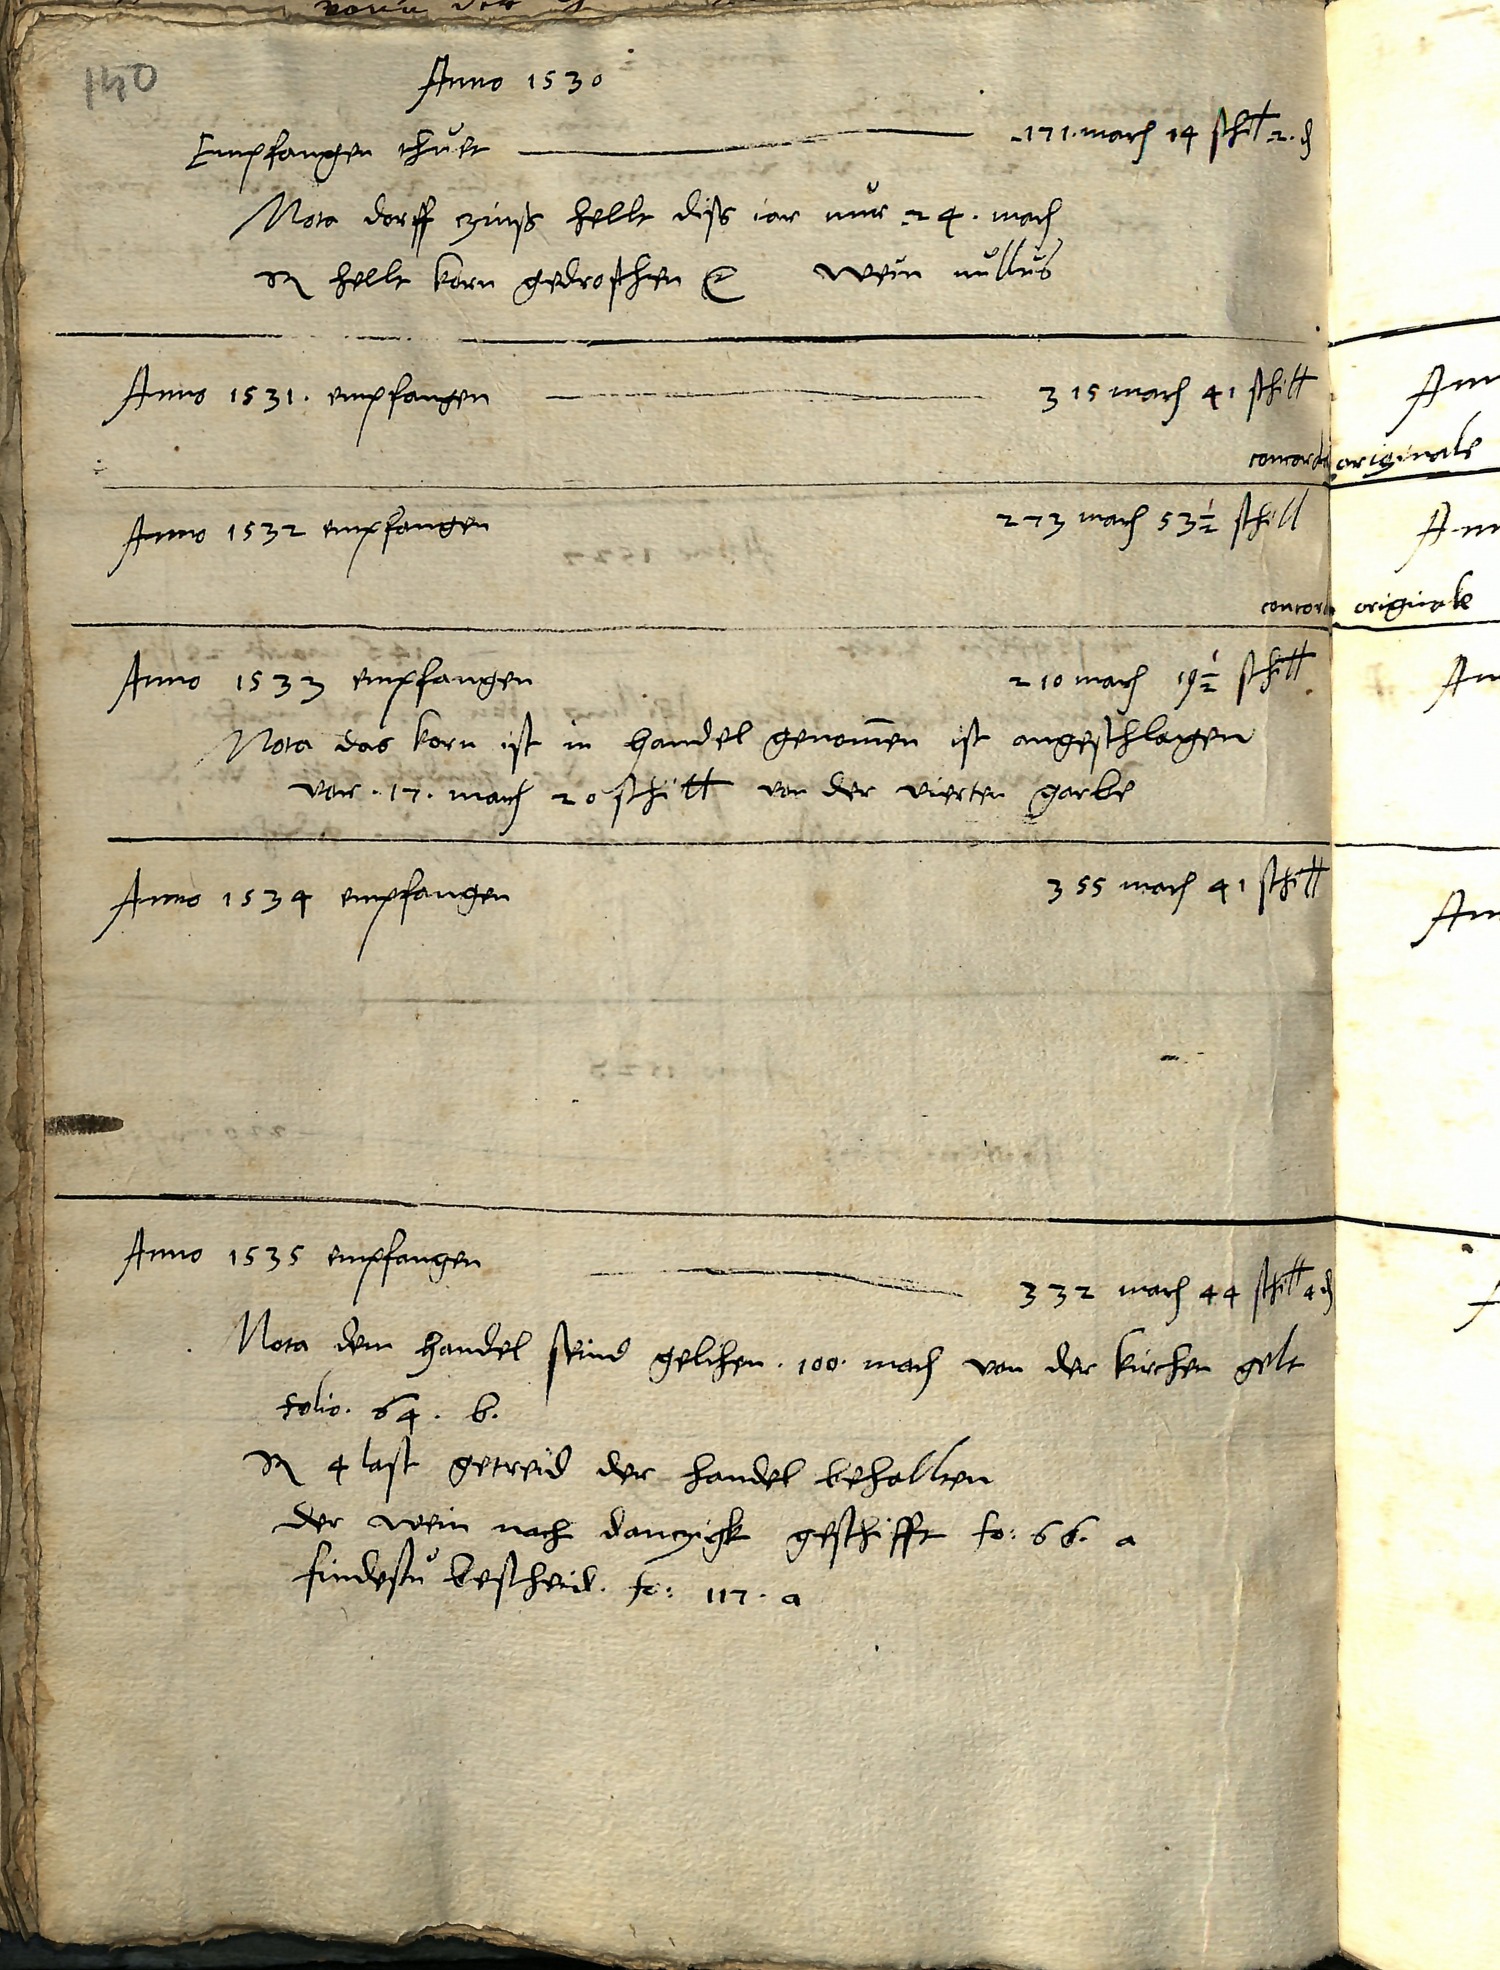 140
Anno 1530
Empfangen thuet 171 march 14 schill 2 d
Nota dorff czinss hellt diss iar nur 24. march
It hellt korn gedroschen wein nullus
Anno 1531. empfangen 315 march 41 schill
concordat originale
Anno 1532 empfangen 273 march 53 1/2 schill
concord originale
Anno 1533 empfangen 210 march 19 1/2 schill
Nota das korn ist in handel genom̄en ist angeschlagen
vor . 17 . march 20 schill von der vierten garbe
Anno 1534 empfangen 355 march 41 schill
Anno 1535 empfangen 332 march 44 schill 4 d
Nota dem handel seind gelihen . 100 . march von der kirchen gelt
folio . 64 . b.
It 4 last getreid der handel behallten
der wein nach danczigk geschifft fo: 66. a
findestu bescheid. fo: 117. a